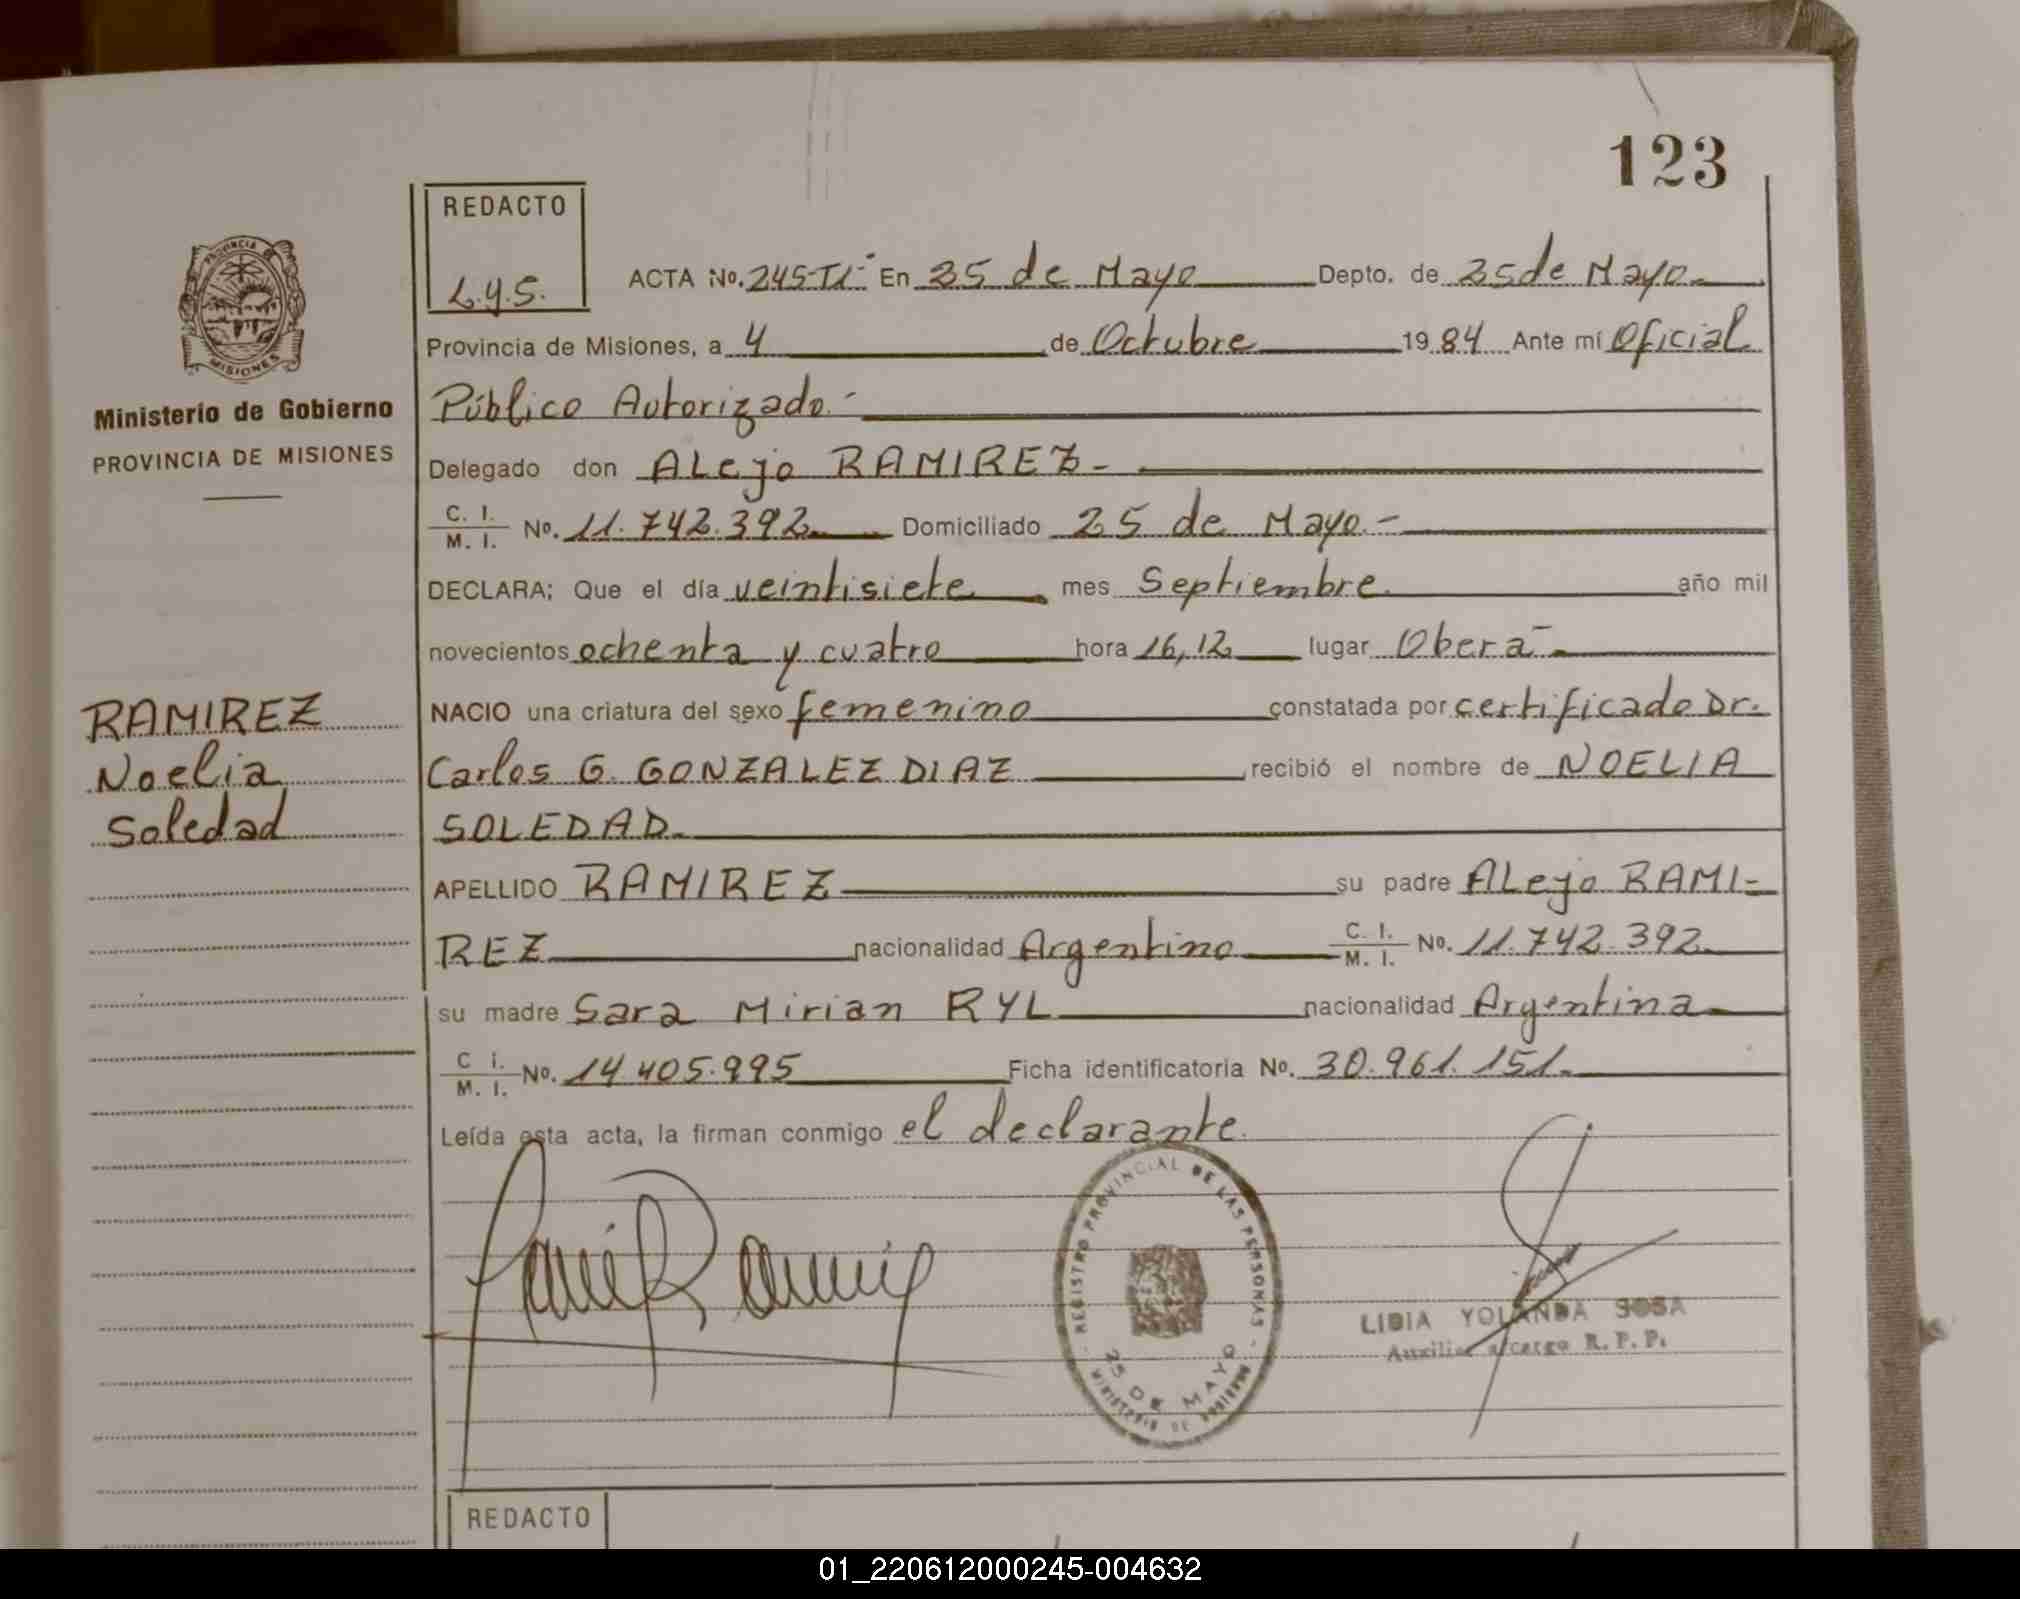 123
REDACTO
L.Y.S.
ACTA No. 245-TI- En 25 de Mayo Depto. de 25 de Mayo
Provincia de Misiones, a 4 de Octubre 1984 Ante mí Oficial
Público Autorizado.-
Delegado don ALejo RAMIREZ-
C. I. / M. I. No. 11.742.392 Domiciliado 25 de Mayo.-
DECLARA; Que el día veintisiete mes Septiembre año mil
novecientos ochenta y cuatro hora 16,12 lugar Oberá
NACIO una criatura del sexo femenino constatada por certificado Dr.
Carlos G. GONZALEZ DIAZ recibió el nombre de NOELIA
SOLEDAD.
APELLIDO RAMIREZ su padre ALejo RAMI-
REZ nacionalidad Argentino C. I. / M. I. No. 11.742.392
su madre Sara Mirian RYL nacionalidad Argentina
C I. / M. I. No. 14.405.995 Ficha identificatoria No. 30.961.151.
Leída esta acta, la firman conmigo el declarante.
PROVINCIA DE MISIONES
Ministerio de Gobierno
PROVINCIA DE MISIONES
RAMIREZ
Noelia
Soledad
REGISTRO PROVINCIAL DE LAS PERSONAS
25 DE MAYO
MINISTERIO DE GOBIERNO
LIDIA YOLANDA SOSA
Auxiliar a cargo R. P. P.
REDACTO
01_220612000245-004632